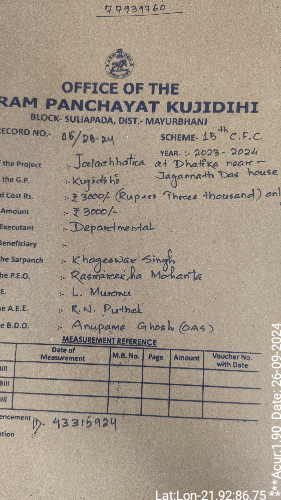 77939760
OFFICE OF THE
RAM PANCHAYAT KUJIDIHI
BLOCK- SULIAPADA, DIST.- MAYURBHANJ
RECORD NO.- 05/23-24 SCHEME- 15th C.F.C
YEAR :- 2023-2024
the Project :- Jalachhatra at Dhatika near - Jagannath Das house
the G.P. :- Kujidihi
d Cost Rs. :- ₹ 3000/- (Rupees Three thousand) onl
Amount :- ₹ 3000/-
Executant :- Departmental
Beneficiary :-
the Sarpanch :- Khageswar Singh
the P.E.O. :- Rasmirekha Mohanta
E. :- L. Murmu
he A.E.E. :- R.N. Puthal
e B.D.O. :- Anupama Ghosh (OAS)
MEASUREMENT REFERENCE
Date of Measurement M.B. No. Page Amount Voucher No. with Date
Bill
Bill
Bill
encement ID- 43315924
etion
Lat:Lon-21.92:86.75
***Acur:1.90 Date: 26-09-2024